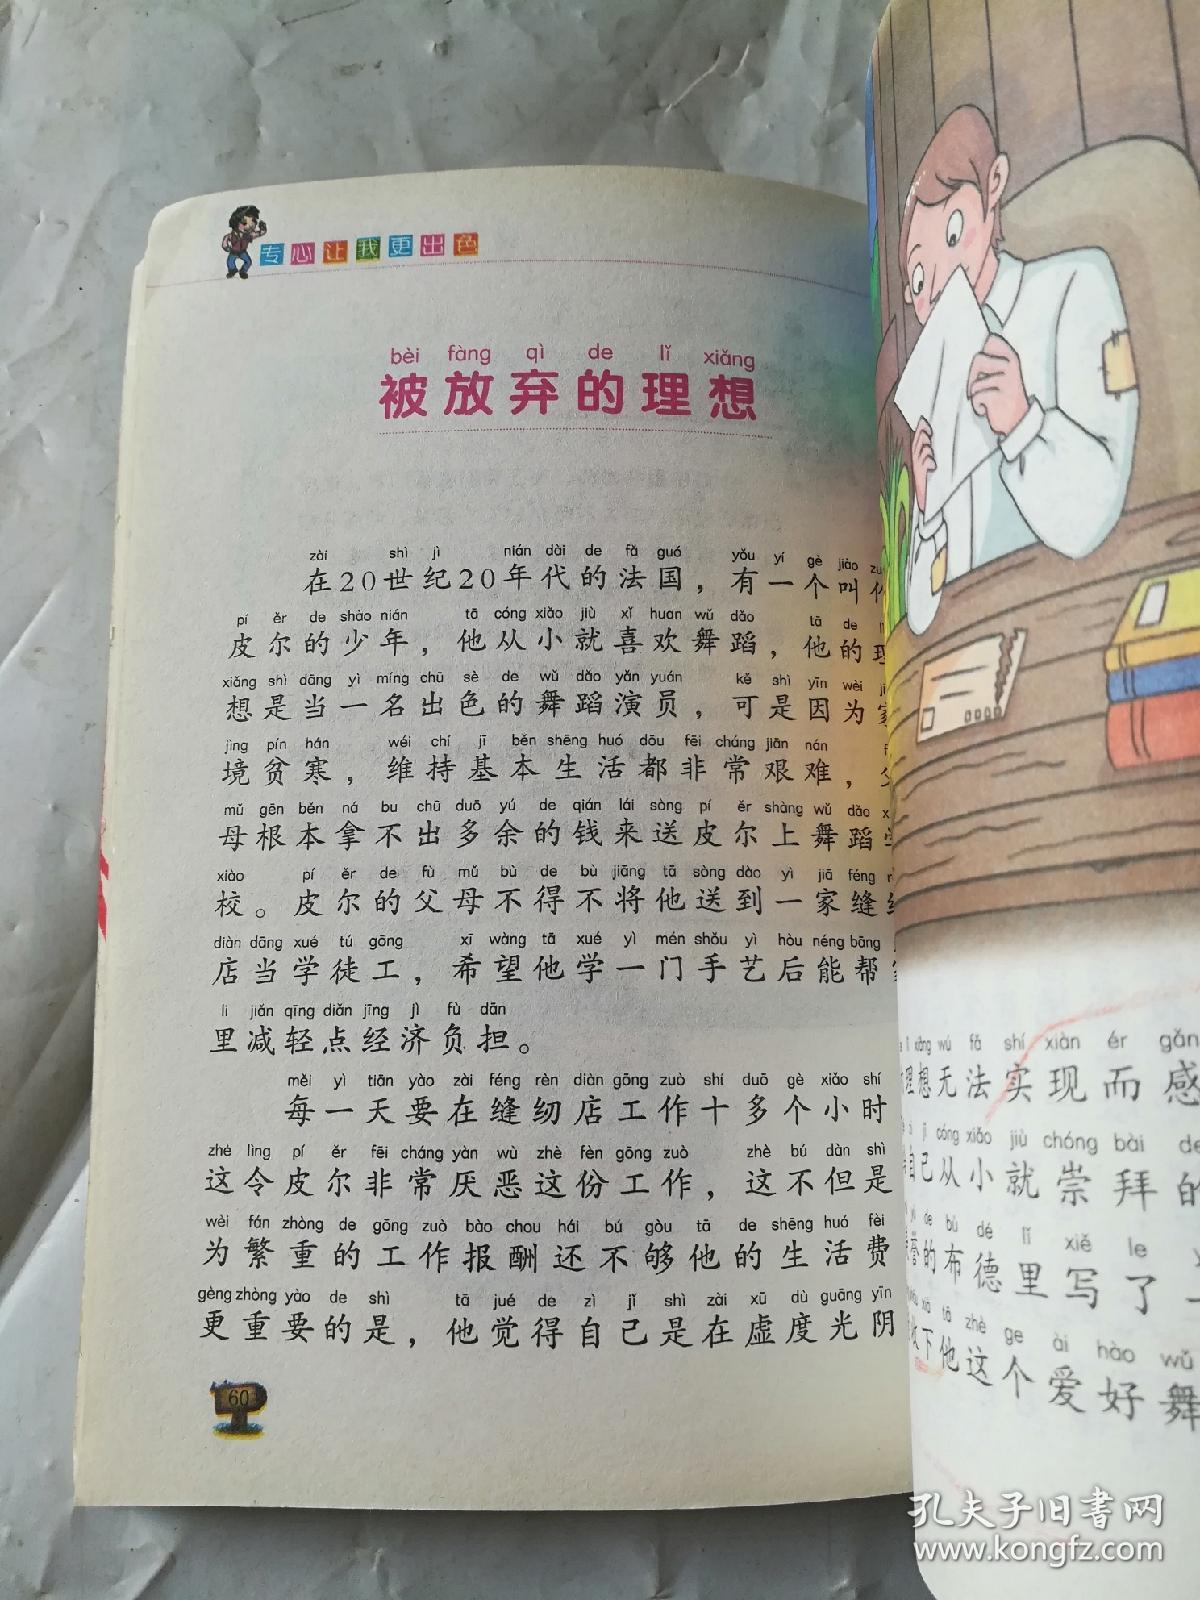 专心让我更出色
bèi fàng qì de lǐ xiǎng
被放弃的理想
zài shì jì nián dài de fǎ guó yǒu yí gè jiào
在20世纪20年代的法国，有一个叫
pí ěr de shào nián tā cóng xiǎo jiù xǐ huan wǔ dǎo tā de
皮尔的少年，他从小就喜欢舞蹈，他的理
xiǎng shì dāng yì míng chū sè de wǔ dǎo yǎn yuán kě shì yīn wèi
想是当一名出色的舞蹈演员，可是因为家
jìng pín hán wéi chí jī běn shēng huó dōu fēi cháng jiān nán
境贫寒，维持基本生活都非常艰难，父
mǔ gēn běn ná bu chū duō yú de qián lái sòng pí ěr shàng wǔ dǎo
母根本拿不出多余的钱来送皮尔上舞蹈学
xiào pí ěr de fù mǔ bù de bù jiāng tā sòng dào yì jiā féng
校。皮尔的父母不得不将他送到一家缝纫
diàn dāng xué tú gōng xī wàng tā xué yì mén shǒu yì hòu néng bāng
店当学徒工，希望他学一门手艺后能帮家
li jiǎn qīng diǎn jīng jì fù dān
里减轻点经济负担。
měi yì tiān yào zài féng rèn diàn gōng zuò shí duō gè xiǎo shí
每一天要在缝纫店工作十多个小时
zhè lìng pí ěr fēi cháng yàn wù zhè fèn gōng zuò zhè bú dàn shì
这令皮尔非常厌恶这份工作，这不但是
wèi fán zhòng de gōng zuò bào chou hái bú gòu tā de shēng huó fèi
为繁重的工作报酬还不够他的生活费
gèng zhòng yào de shì tā jué de zì jǐ shì zài xū dù guāng yīn
更重要的是，他觉得自己是在虚度光阴
60
xiǎng wú fǎ shí xiàn ér gǎn
理想无法实现而感
jǐ cóng xiǎo jiù chóng bài de
自己从小就崇拜的
de bù dé lǐ xiě le
誉的布德里写了一
xià tā zhè ge ài hào wǔ
收下他这个爱好舞
孔夫子旧书网
www.kongfz.com